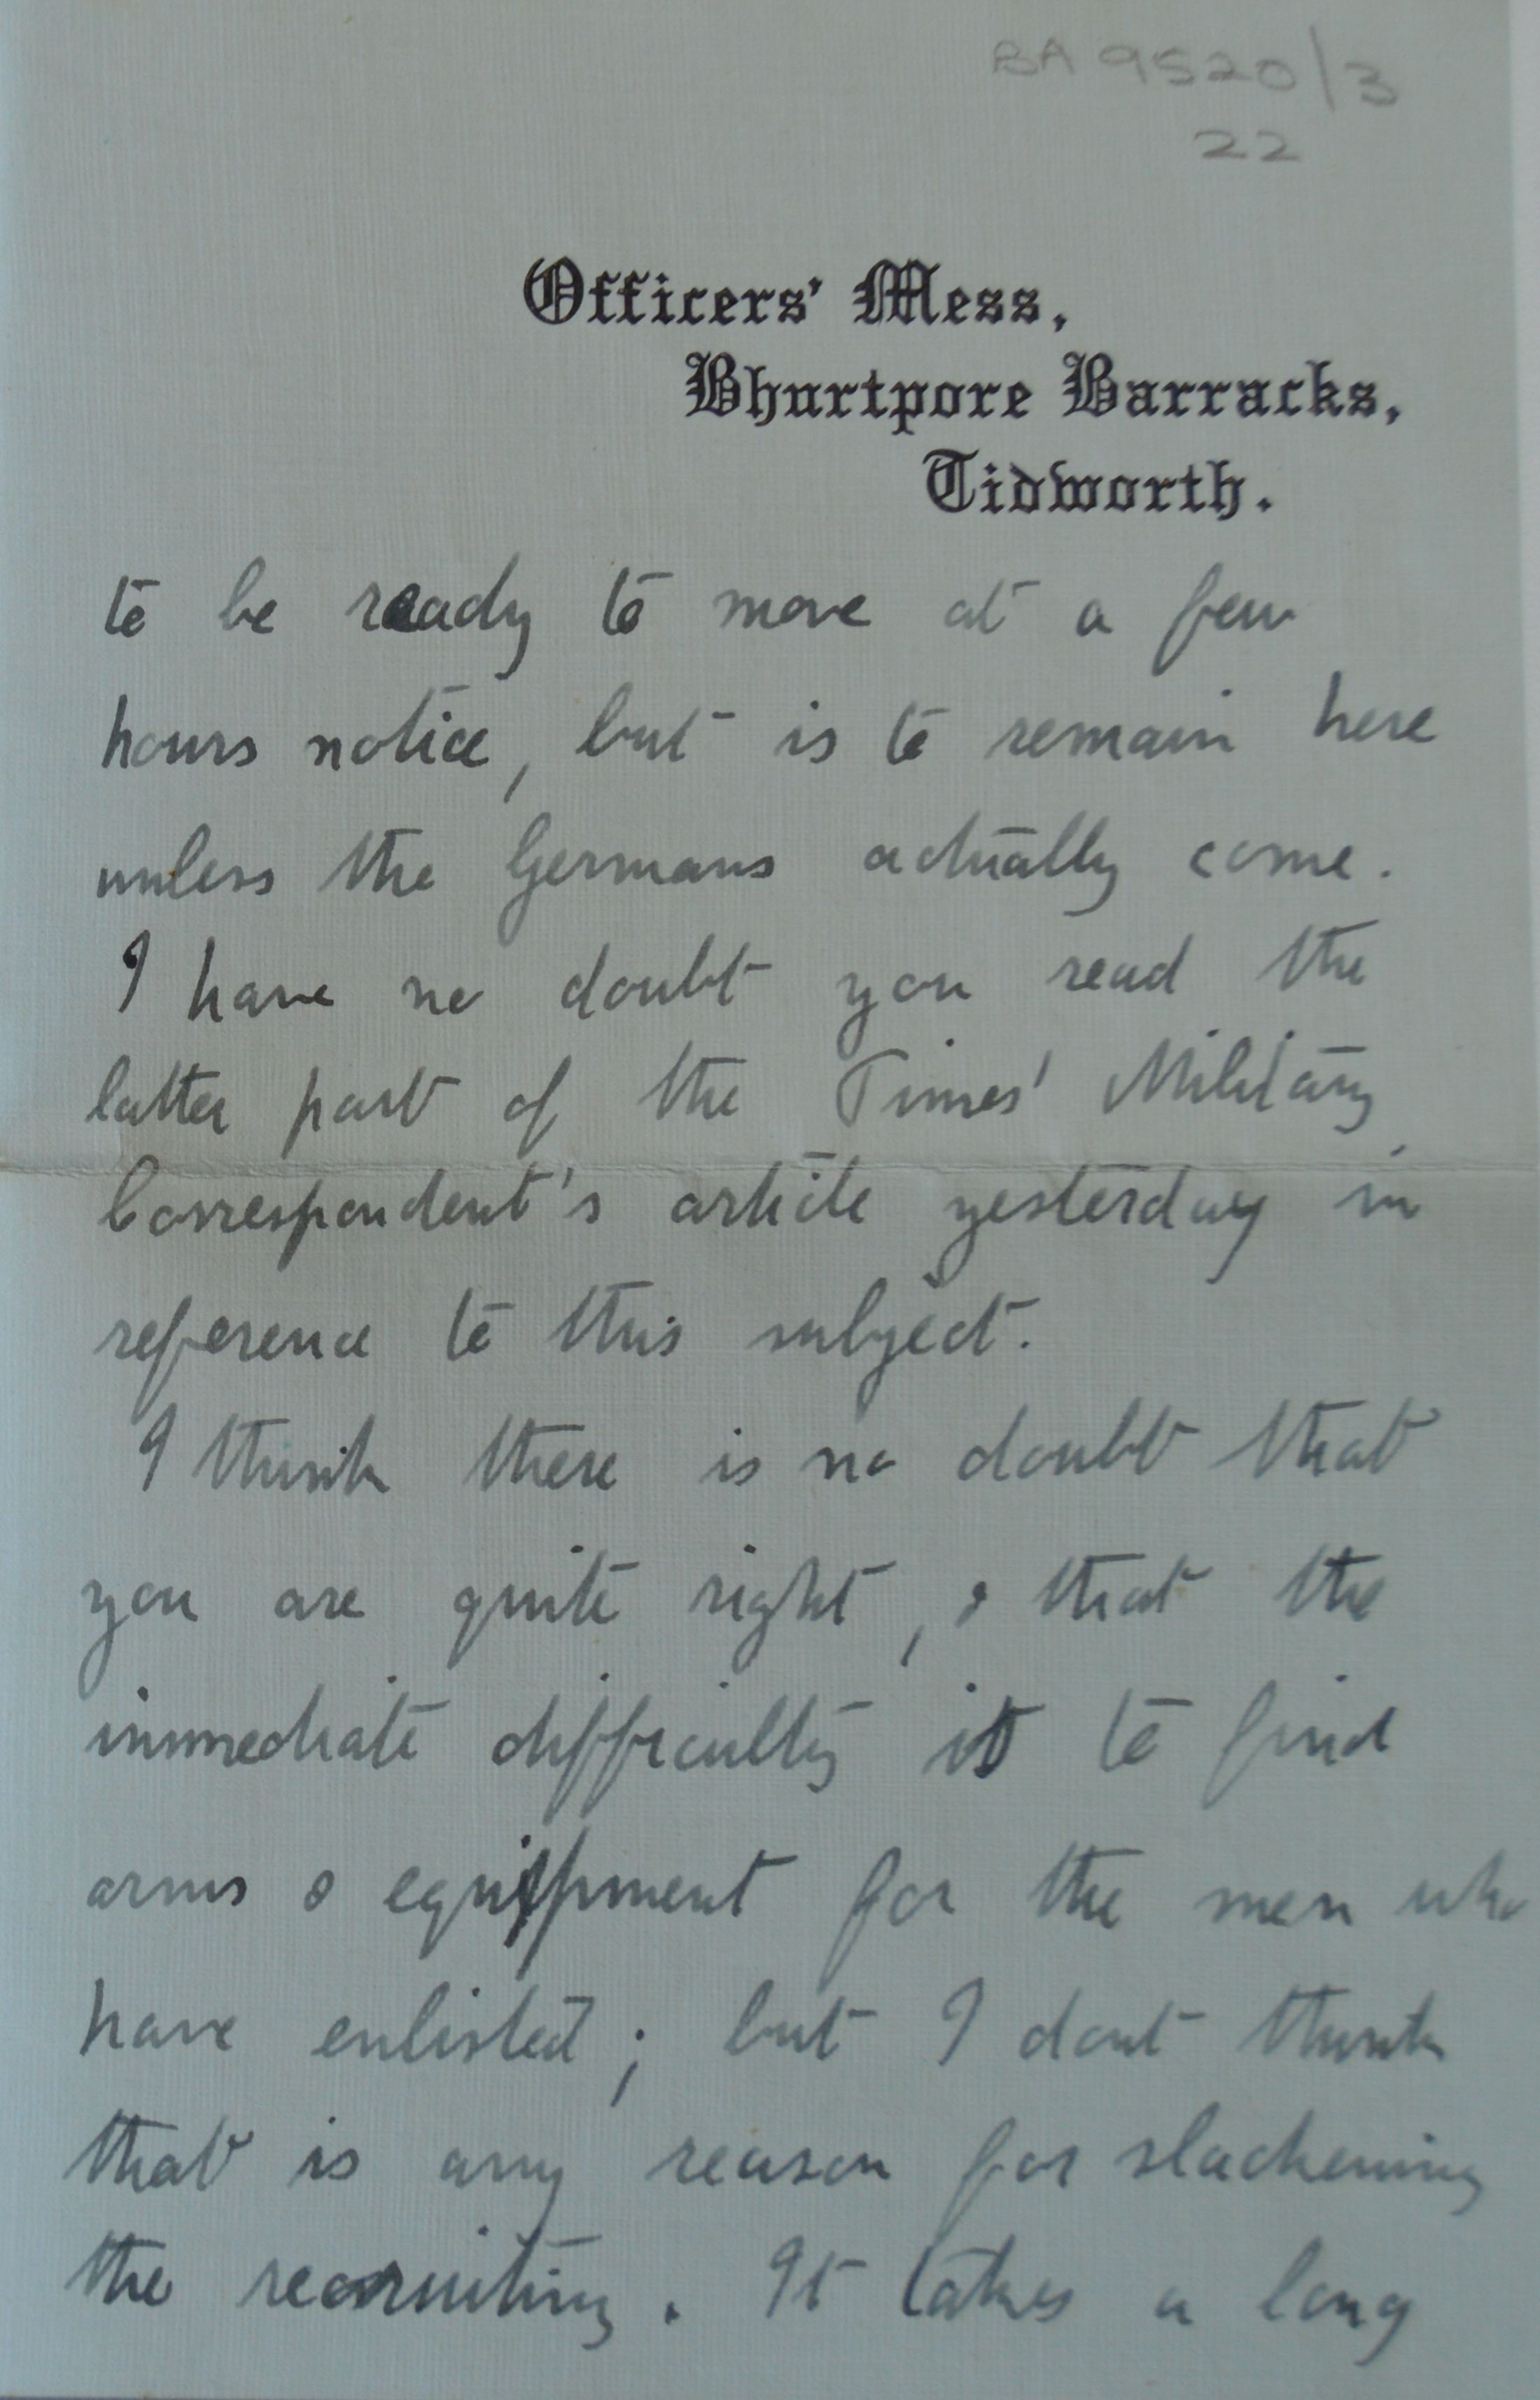 BA 9520/3
22
Officers' Mess,
Bhurtpore Barracks,
Tidworth.
to be ready to move at a few
hours notice, but is to remain here
unless the Germans actually come.
I have no doubt you read the
latter part of the Times' Military
Correspondent's article yesterday in
reference to this subject.
I think there is no doubt that
you are quite right, & that the
immediate difficulty is to find
arms & equipment for the men who
have enlisted; but I dont think
that is any reason for slackening
the recruiting. It takes a long